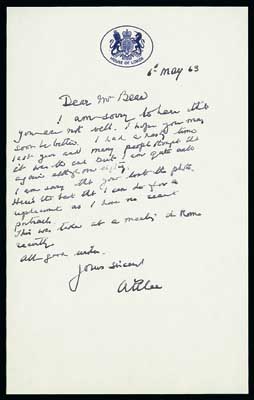 HOUSE OF LORDS
6th May 63
Dear Mr Bead
I am sorry to hear that
you are not well. I hope you may
soon be better. I had a nasty time
last year and many people thought that
it was the end but I am quite well
again although over eighty.
I am sorry that you lost the photo.
Here's the best that I can do for a
replacement as I have no recent
portraits.
This was taken at a meeting in Rome
recently
All good wishes.
Yours sincerely
Attlee